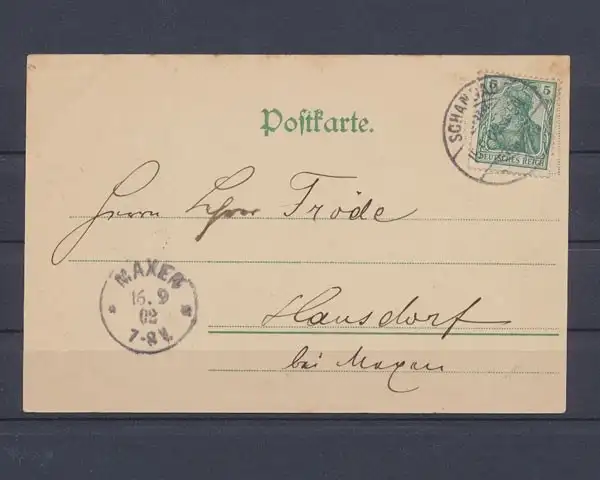 5 5
DEUTSCHES REICH
SCHAN
Postkarte.
Herrn Fröde
MAXEN
16. 9
02
7-8 V.
Hausdorf
bei Maxen